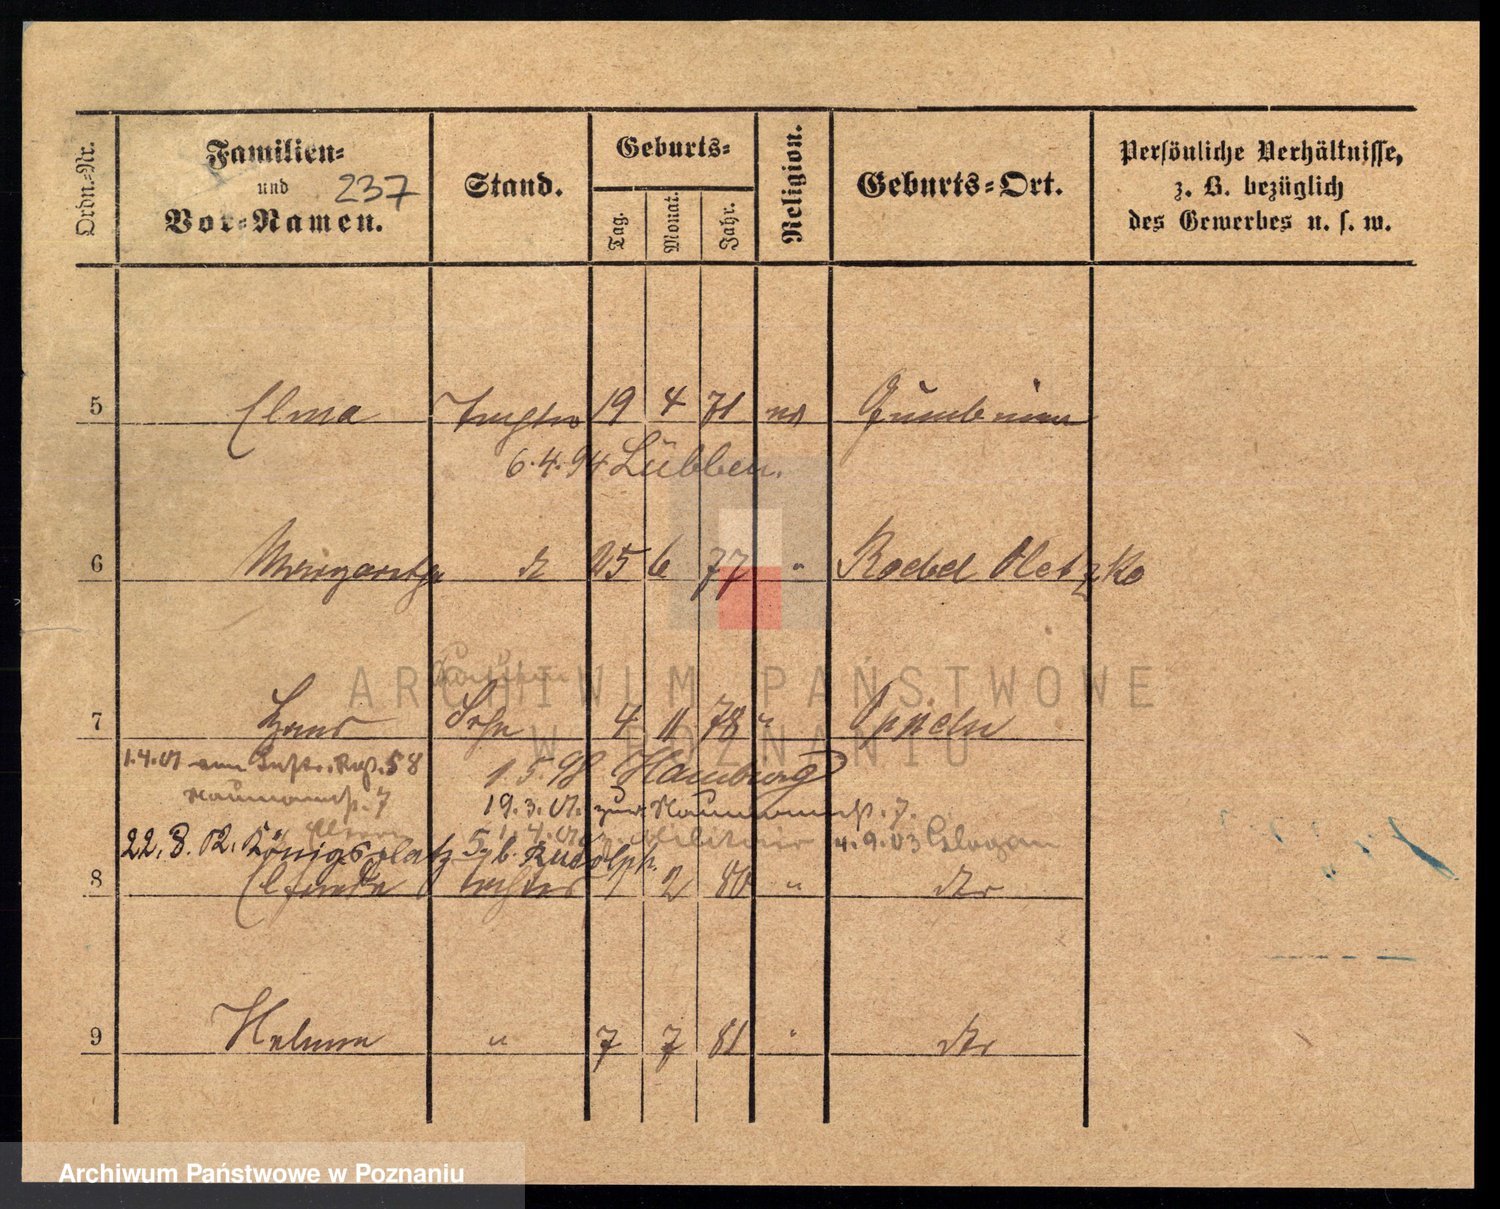 Ordn.-Nr.
Familien-
und 237
Vor-Namen.
Stand.
Geburts-
Tag.
Monat.
Jahr.
Religion.
Geburts-Ort.
Persönliche Verhältnisse,
z. B. bezüglich
des Gewerbes u. s. w.
5 Elma Tochter 19 4 71 Gumbinnen
6.4.94 Lübben.
6 Margarethe 25 6 77 " Oletzko
7 Hans Sohn 4 11 78 " Oppeln
1.4.01 Inftr. Rgt. 58 1.5.98 Hamburg
Naumannst. 7 19.3.01. zur Naumannst. 7.
1.4.01 Militair 4.9.03 Glogau
22.8.02. Königsplatz 5. b. Rudolph.
8 Elfriede Tochter 1 2 80 " dto
9 Helene " 7 7 81 " dto
ARCHIWUM PAŃSTWOWE
W POZNANIU
Archiwum Państwowe w Poznaniu